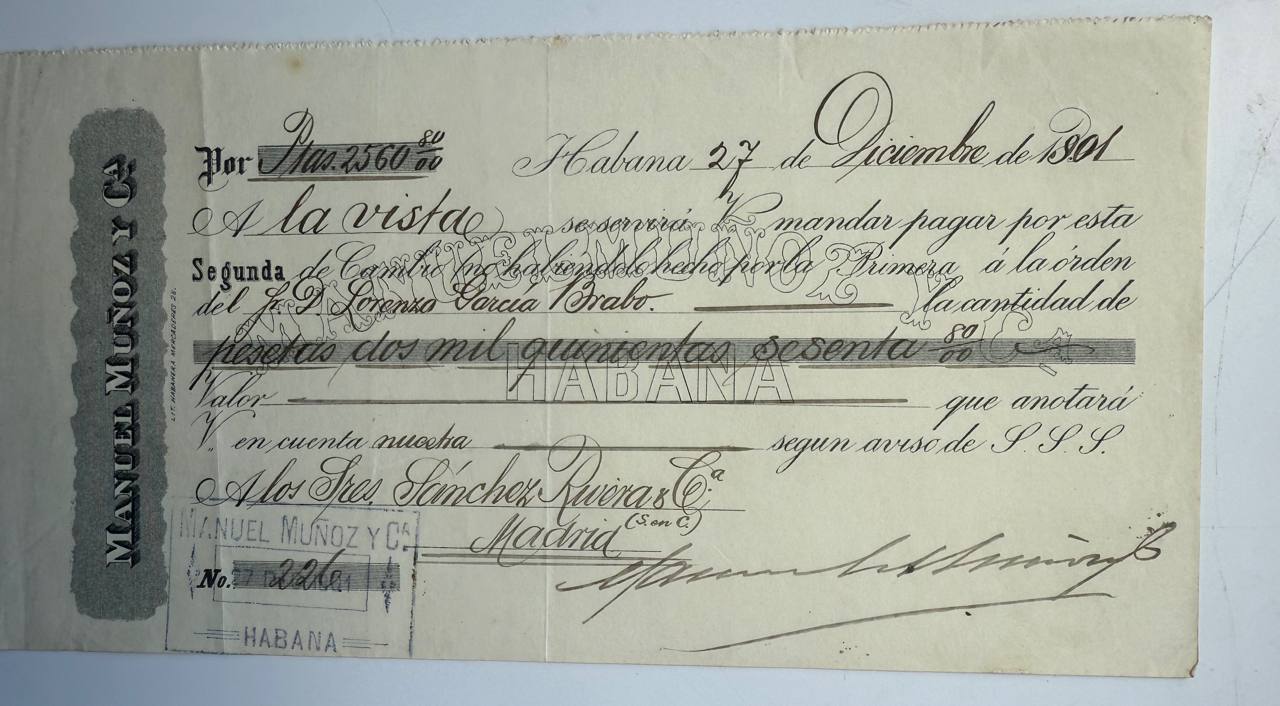 MANUEL MUÑOZ Y CA
LIT. HABANERA MERCADERES 28.
Por Ptas. 2560 80/00 Habana 27 de Diciembre de 1901
A la vista se servirá V mandar pagar por esta
Segunda de Cambio (no habiendolo hecho por la Primera á la órden
del Sr. D. Lorenzo García Brabo. la cantidad de
pesetas dos mil quinientas sesenta 80/00
MANUEL MUÑOZ Y Ca
HABANA
Valor que anotará
V. en cuenta nuestra segun aviso de S. S. S.
A los Sres. Sánchez Rivera & Ca.
(S. en C.)
Madrid
MANUEL MUÑOZ Y CA
No. 226
HABANA